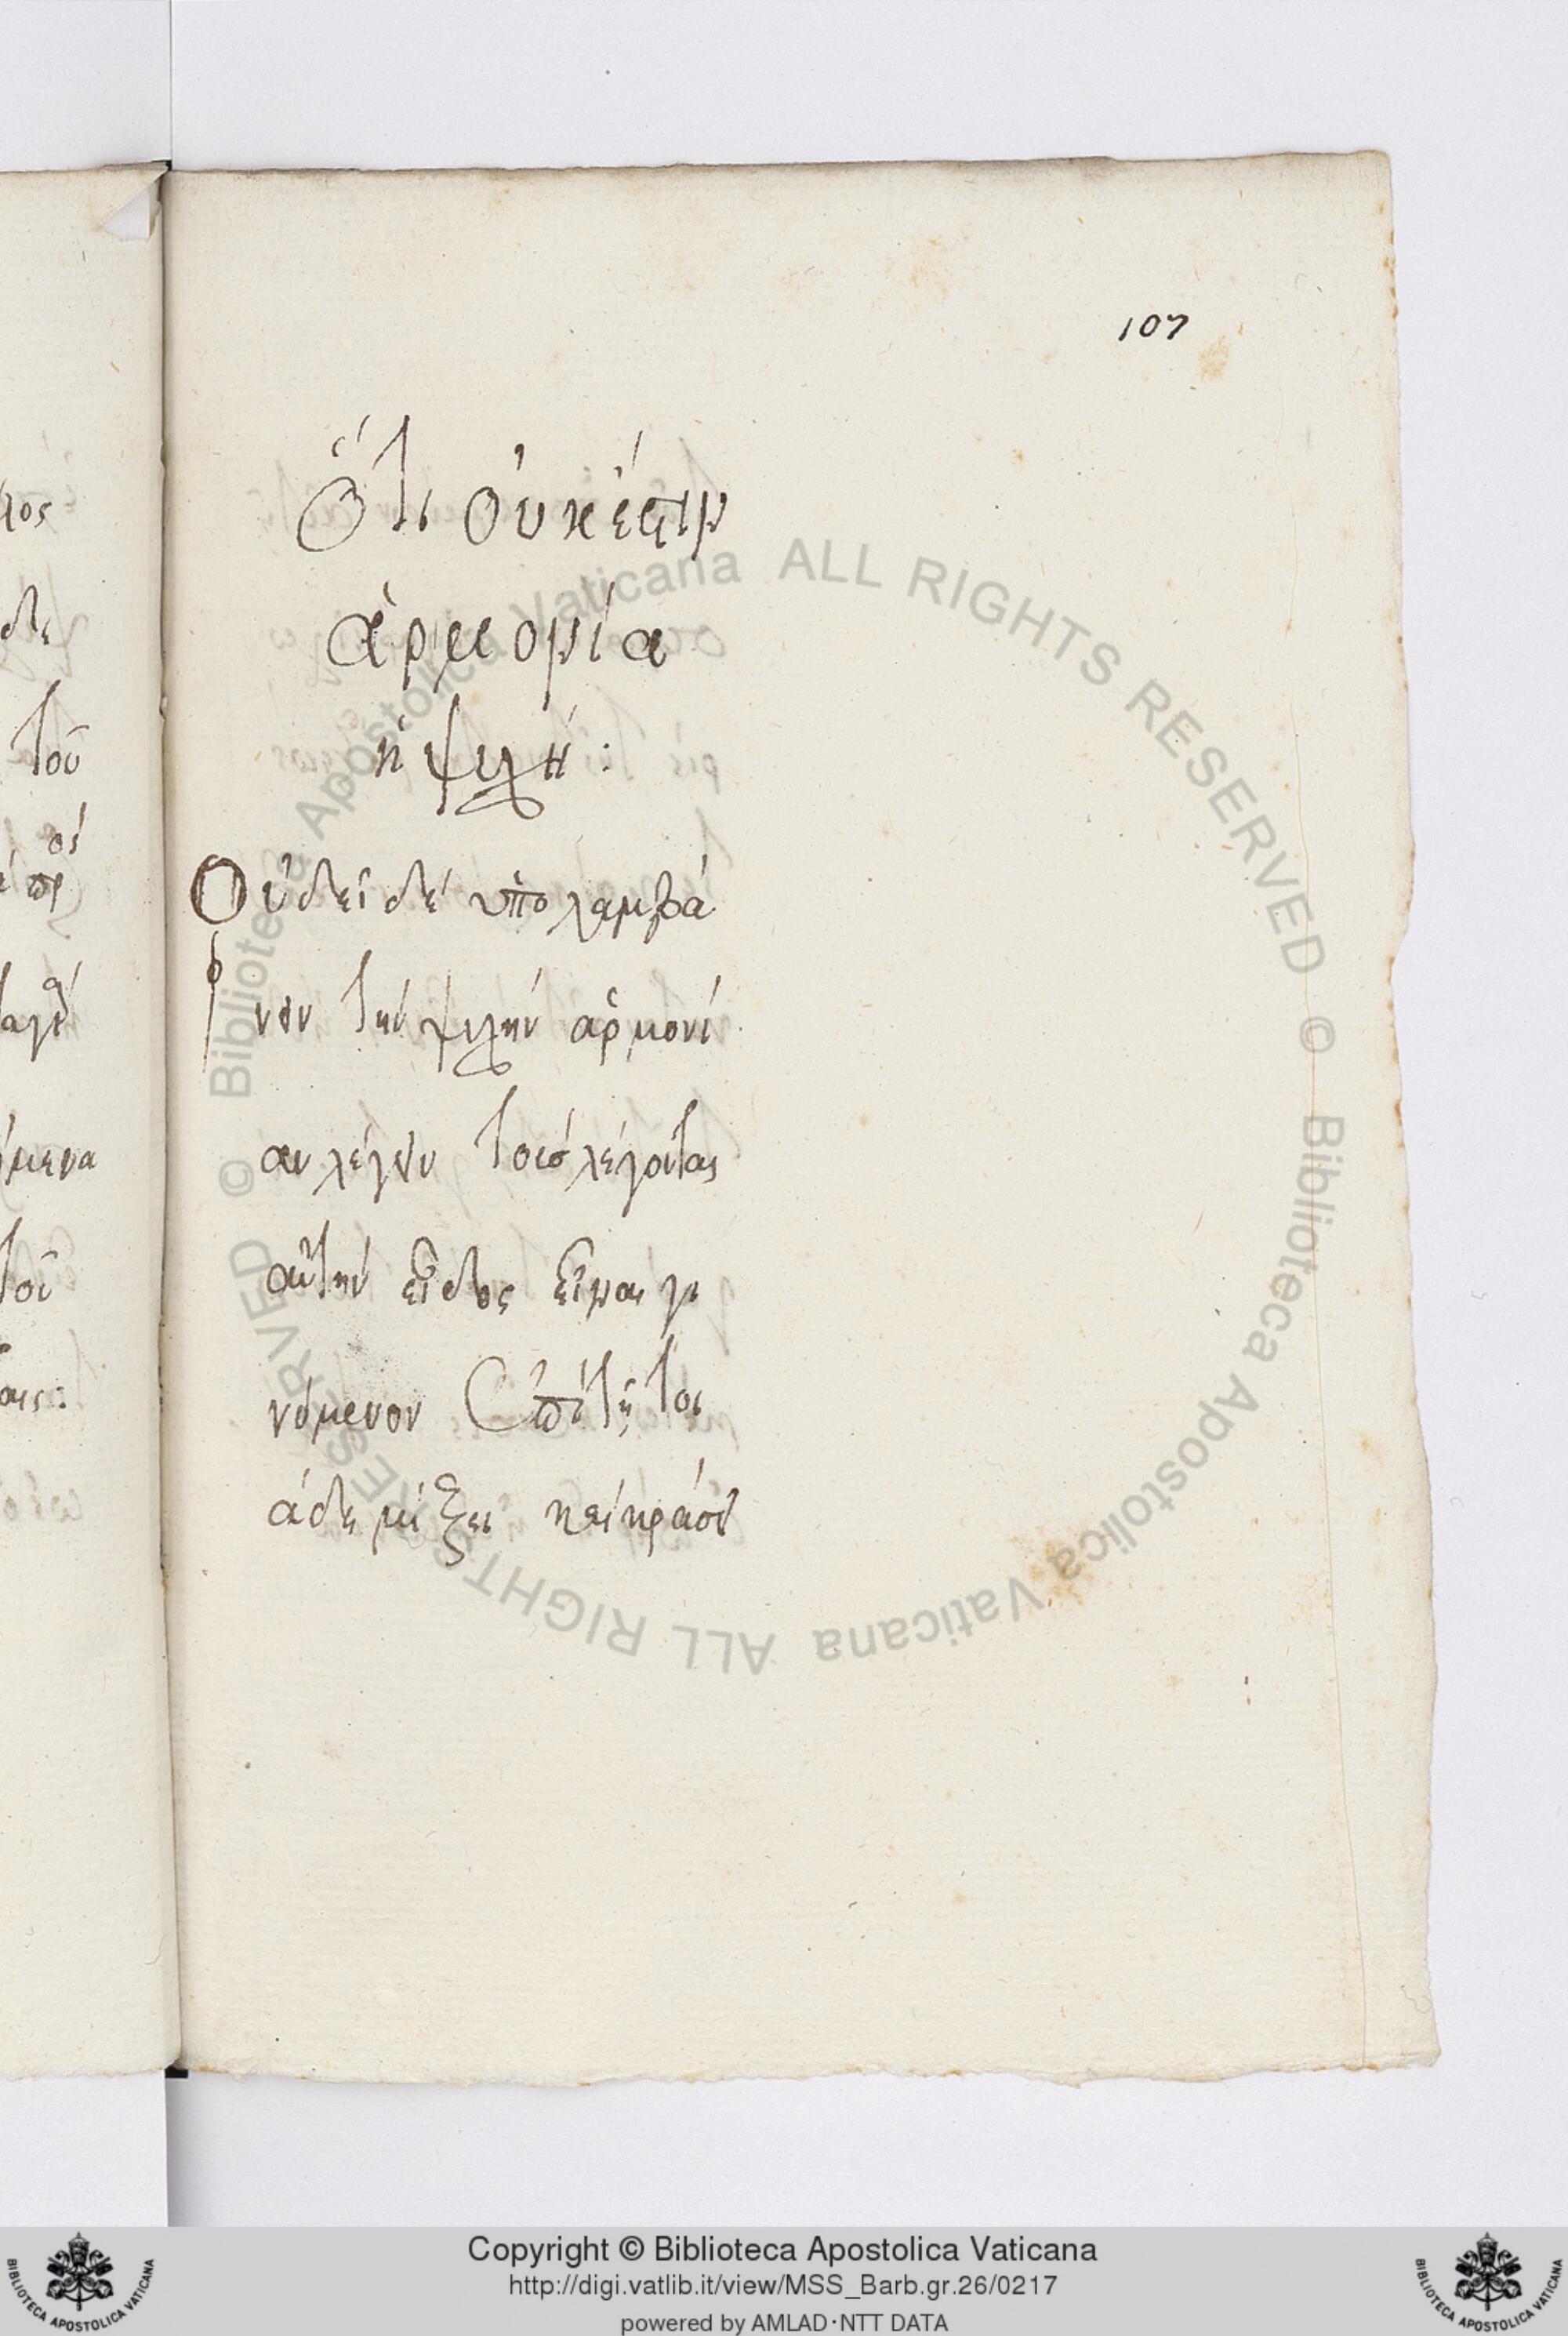 107
Ὅτι οὐκ ἔστιν
ἁρμονία
ἡ ψυχή:
Οὐ δεῖ δέ ὑπολαμβά
νειν τὴν ψυχὴν ἁρμονί
αν λέγειν τοὺσ λέγοντας
αὐτὴν εἶδος εἶναι γι
νόμενον ἐπὶ τῇ τοι
άδε μίξει καὶ κράσει
λος
δε
τοῦ
μενα
τοῦ
αις:
© Biblioteca Apostolica Vaticana ALL RIGHTS RESERVED © Biblioteca Apostolica Vaticana ALL RIGHTS RESERVED
Copyright © Biblioteca Apostolica Vaticana
http://digi.vatlib.it/view/MSS_Barb.gr.26/0217
powered by AMLAD·NTT DATA
BIBLIOTECA APOSTOLICA VATICANA
BIBLIOTECA APOSTOLICA VATICANA